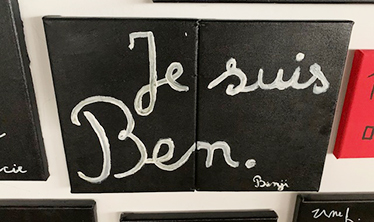 Je suis
Ben.
Benji
cie
une